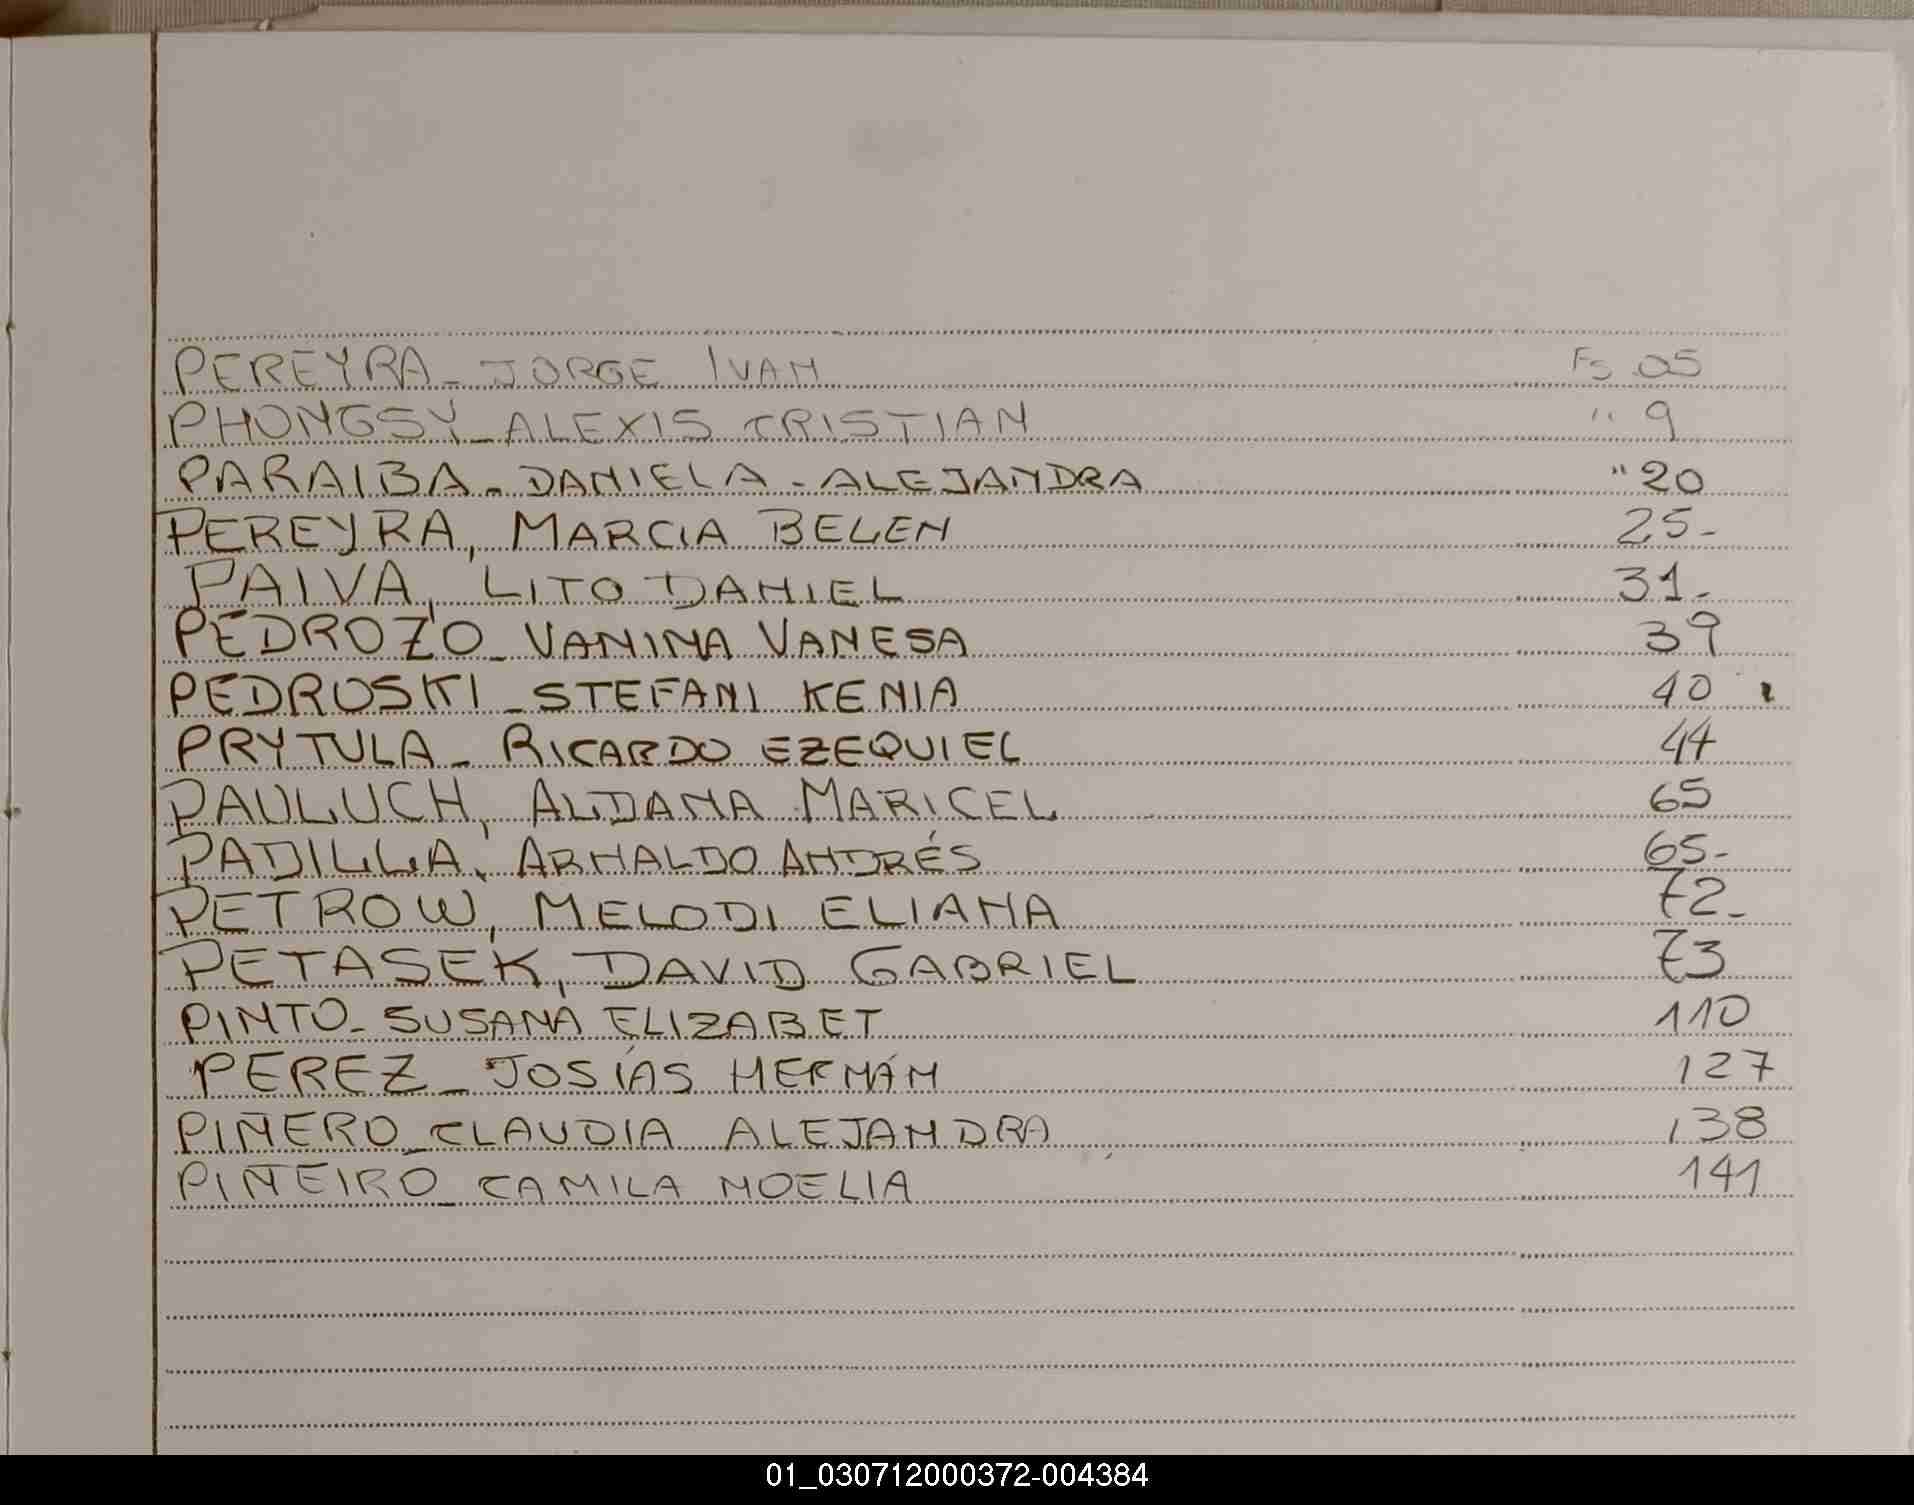 PEREYRA - JORGE IVAN Fs 05
PHONGSY - ALEXIS CRISTIAN " 9
PARAIBA - DANIELA - ALEJANDRA " 20
PEREYRA, MARCIA BELEN 25-
PAIVA, LITO DANIEL 31-
PEDROZO - VANINA VANESA 39
PEDRUSKI - STEFANI KENIA 40
PRYTULA - RICARDO EZEQUIEL 44
PAULUCH, ALDANA MARICEL 65
PADILLA, ARNALDO ANDRÉS 65-
PETROW, MELODI ELIANA 72-
PETASEK, DAVID GABRIEL 73
PINTO - SUSANA ELIZABET 110
PEREZ - JOSÍAS HERNÁN 127
PIÑERO - CLAUDIA ALEJANDRA 138
PIÑEIRO - CAMILA NOELIA 141
01_030712000372-004384